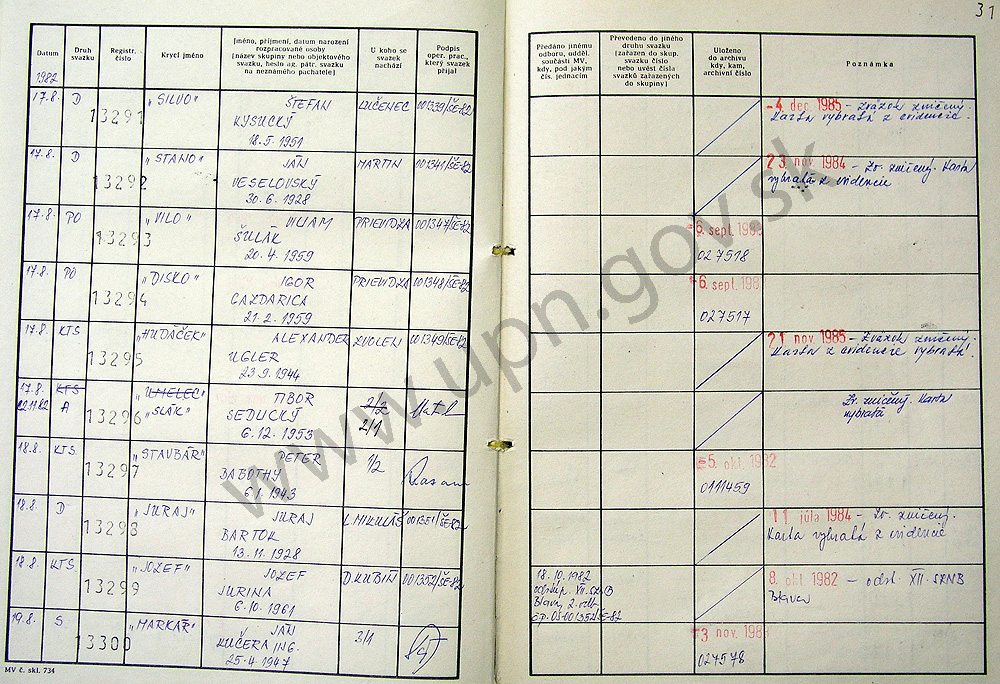 31
Datum
Druh svazku
Registr. číslo
Krycí jméno
Jméno, příjmení, datum narození rozpracované osoby (název skupiny nebo objektového svazku, heslo ag. pátr. svazku na neznámého pachatele)
U koho se svazek nachází
Podpis oper. prac., který svazek přijal
Předáno jinému odboru, odděl. součásti MV, kdy, pod jakým čís. jednacím
Převedeno do jiného druhu svazku (zařazen do skup. svazku číslo nebo uvést čísla svazků zařazených do skupiny)
Uloženo do archivu kdy, kam, archivní číslo
Poznámka
1982
17.8. D 13291 "SILVO" ŠTEFAN LUČENEC 001339/ŠE-82
KYSUCKÝ
18.5.1951
-4. dec. 1985 - Zväzok zničený.
Karta vybratá z evidencie.
17.8. D 13292 "STANO" JÁN MARTIN 001341/ŠE-82
VESELOVSKÝ
30.6.1928
23 nov 1984 - Zv. zničený. Karta
vybratá z evidencie
17.8. PO 13293 "VILO" VILIAM PRIEVIDZA 001347/ŠE-82
ŠULÁK
20.4.1959
6. sept. 198
027518
17.8. PO 13294 "DISKO" IGOR PRIEVIDZA 001348/ŠE-82
GAZDARICA
21.2.1959
6. sept. 198
027517
17.8. KTS 13295 "HUDÁČEK" ALEXANDER ZVOLEN 001349/ŠE-82
UGLER
23.9.1944
21 nov. 1985 - Zväzok zničený.
Karta z evidencie vybratá!
17.8. KTS 13296 "UMELEC" TIBOR 2/2
22.11.82 A "SLÁK" SEDUCKÝ 2/1
6.12.1953
Zv. zničený. Karta
vybratá
18.8. KTS 13297 "STAVBÁR" PETER 1/2
BABOTHY
6.1.1943
5. okt. 1982
0111459
18.8. D 13298 "JURAJ" JURAJ L.MIKULÁŠ
BARTOK
13.11.1928
11 júla 1984 - Zv. zničený.
Karta vybratá z evidencie
18.8. KTS 13299 "JOZEF" JOZEF D.KUBÍN 001352/ŠE-82
JURINA
6.10.1961
18.10.1982
odstúp. VII. SZNB
Blava, 2. odb.
č.p. OS-001352/ŠE-82
8. okt. 1982 - odst. XII. SZNB
Blava
19.8. S. 13300 "MARKAŘ" JÁN 3/1
KUČERA ING.
25.4.1947
3 nov. 198
027578
MV č. skl. 734
www.upn.gov.sk